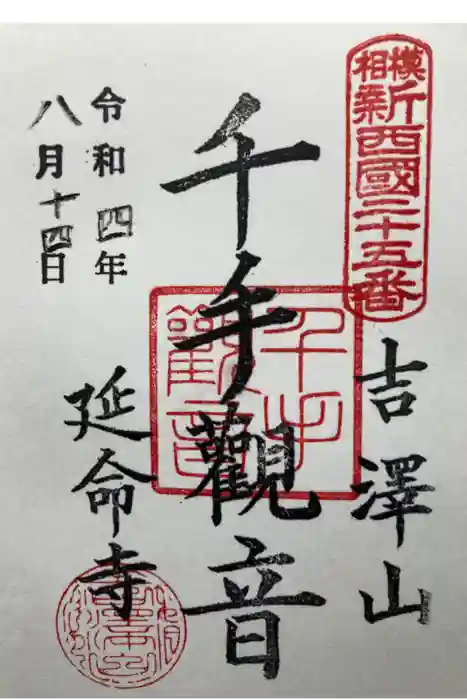 新西國二十五番
吉澤山
千手觀音
千手觀音
令和四年
八月十四日
延命寺